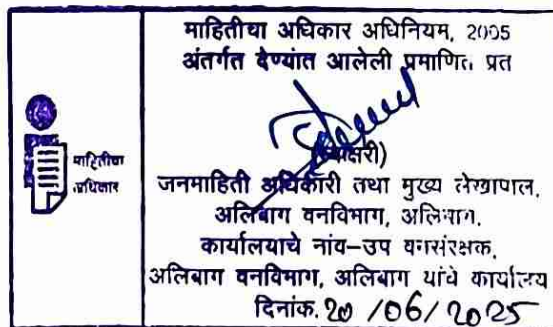 माहितीचा अधिकार अधिनियम, 2005
अंतर्गत देण्यात आलेली प्रमाणित प्रत
माहितीचा
अधिकार
(स्वाक्षरी)
जनमाहिती अधिकारी तथा मुख्य लेखापाल,
अलिबाग वनविभाग, अलिबाग.
कार्यालयाचे नांव-उप वनसंरक्षक,
अलिबाग वनविभाग, अलिबाग यांचे कार्यालय
दिनांक. 20 /06/2025